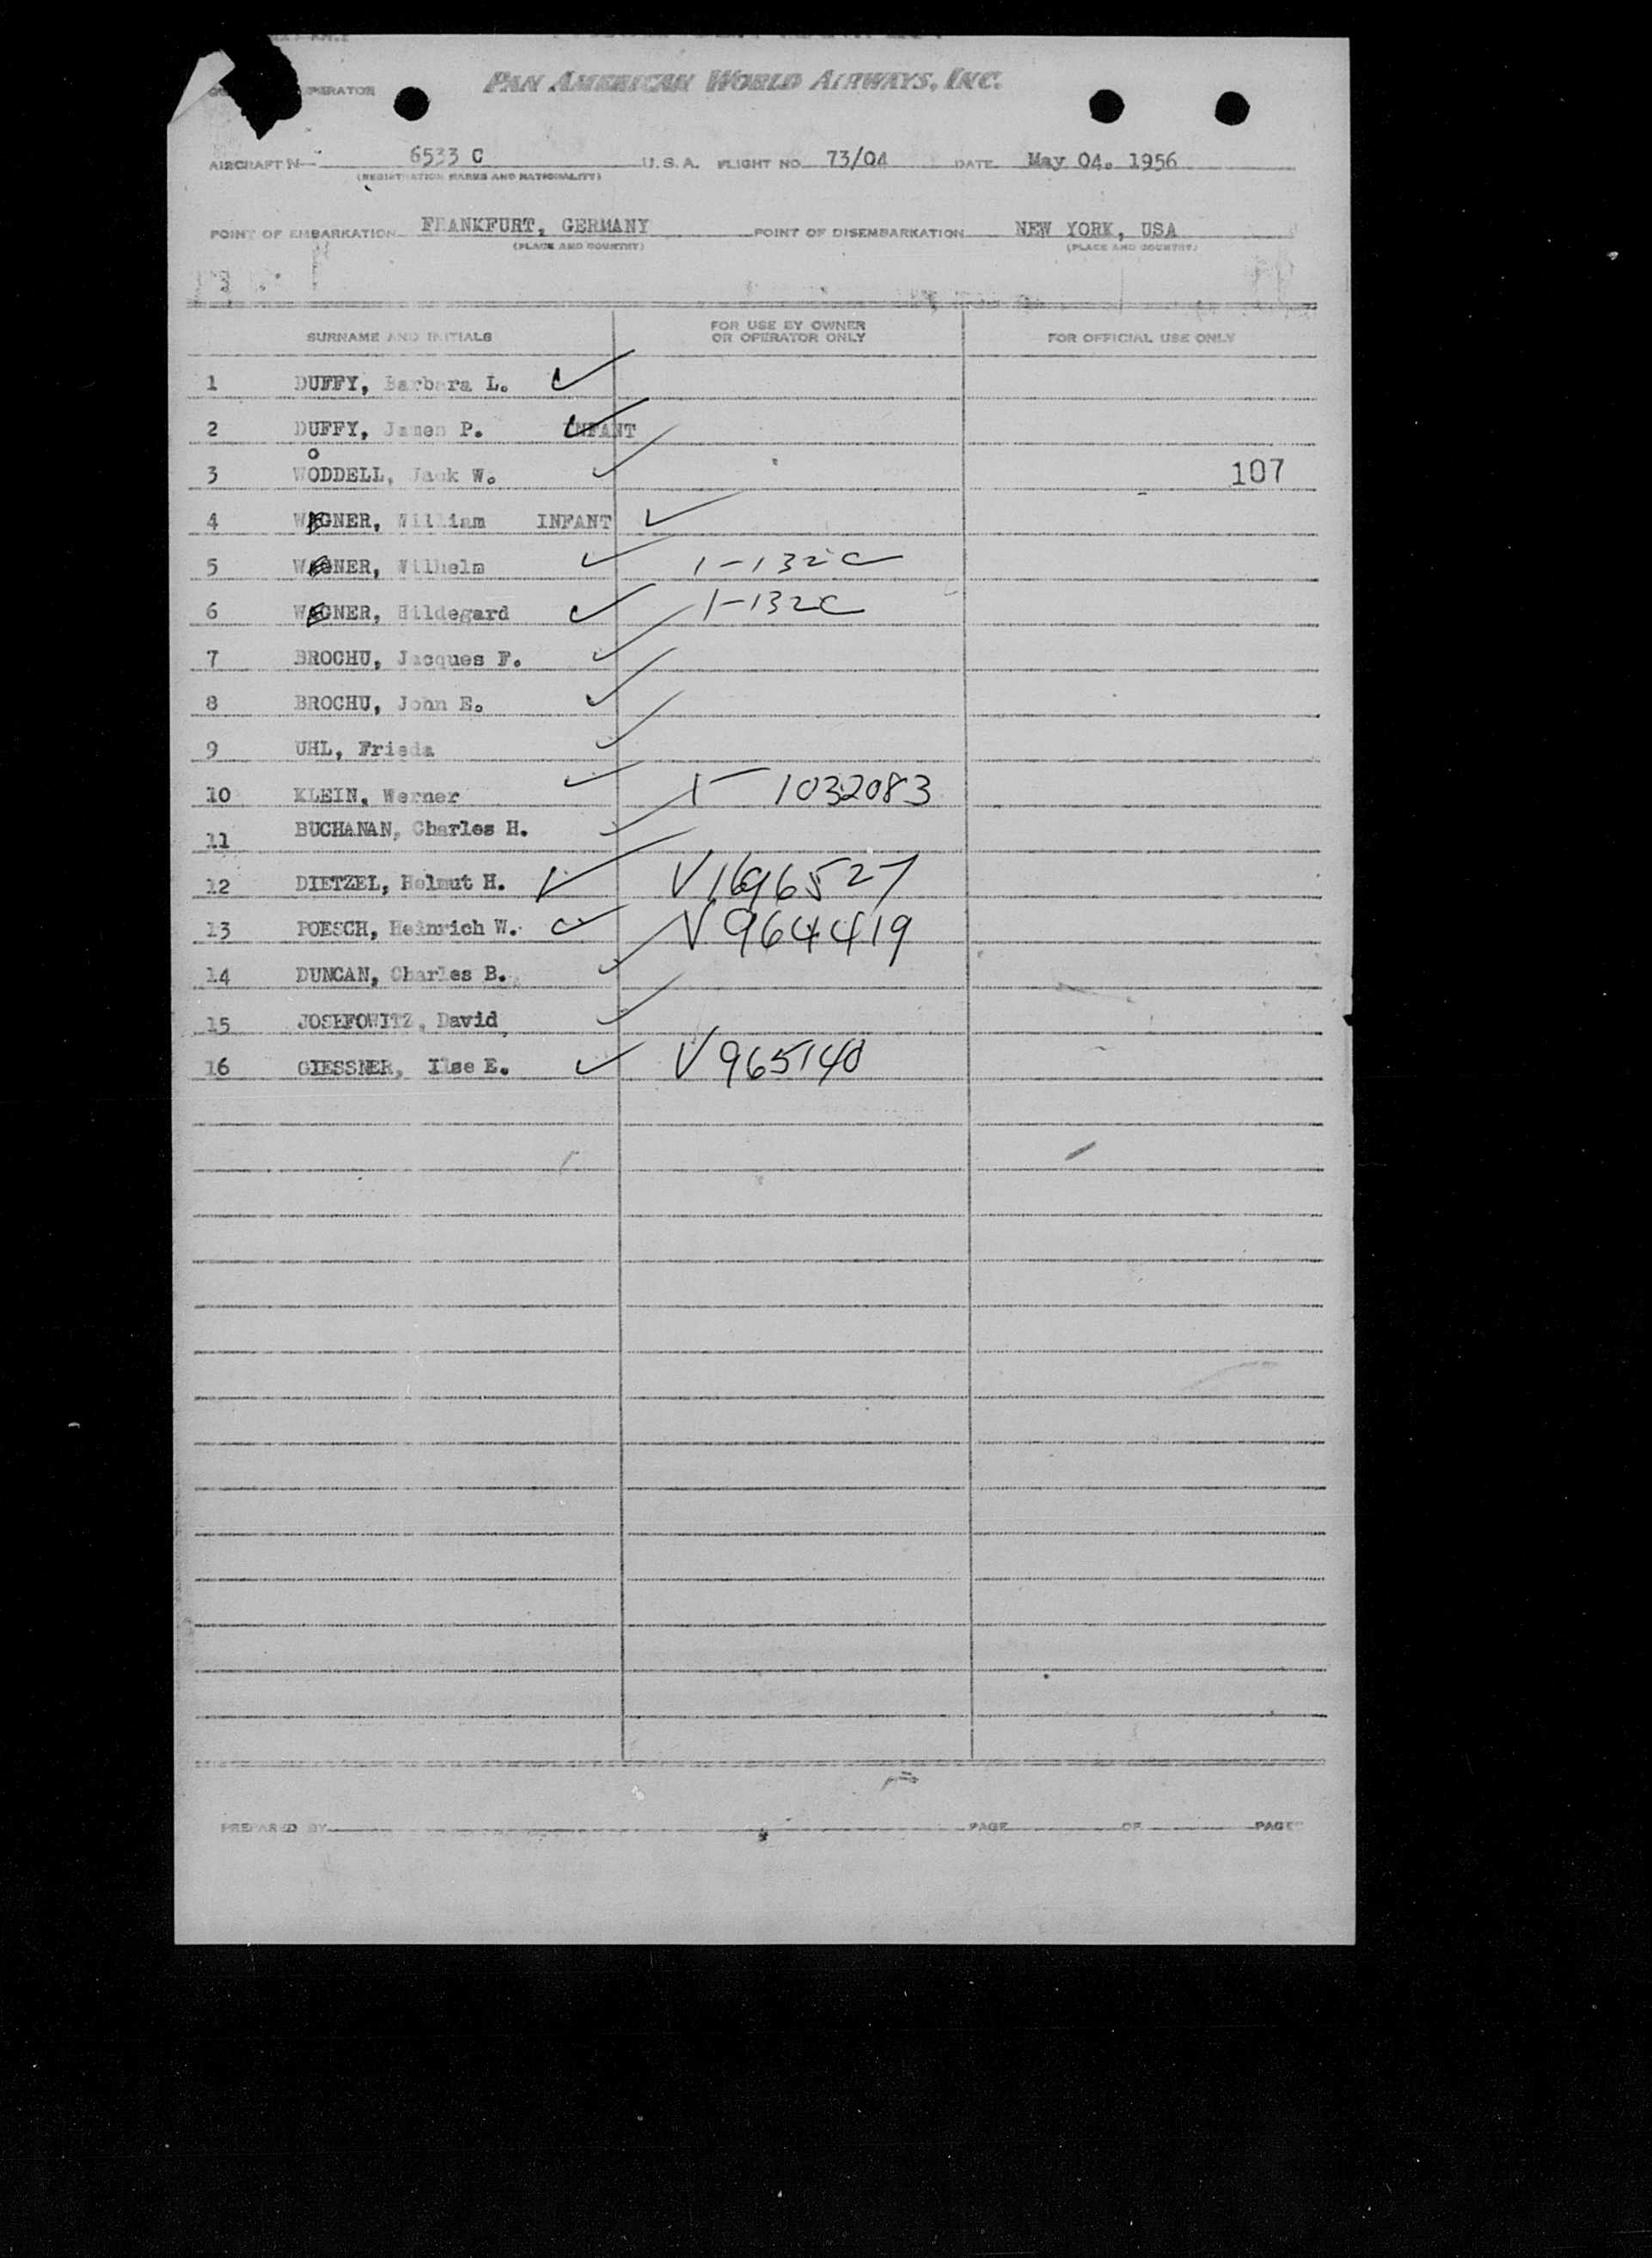 OPERATOR
PAN AMERICAN WORLD AIRWAYS, INC.
AIRCRAFT N- 6533 C U.S.A. FLIGHT NO. 73/04 DATE May 04. 1956
(REGISTRATION MARKS AND NATIONALITY)
POINT OF EMBARKATION FRANKFURT, GERMANY POINT OF DISEMBARKATION NEW YORK, USA
(PLACE AND COUNTRY) (PLACE AND COUNTRY)
SURNAME AND INITIALS FOR USE BY OWNER OR OPERATOR ONLY FOR OFFICIAL USE ONLY
1 DUFFY, Barbara L. ✓
2 DUFFY, James P. INFANT ✓
o
3 WODDELL, Jack W. ✓ 107
4 WEGNER, William INFANT ✓
5 WEGNER, Wilhelm ✓ 1-132C
6 WEGNER, Hildegard ✓ 1-132C
7 BROCHU, Jacques F. ✓
8 BROCHU, John E. ✓
9 UHL, Frieda ✓
10 KLEIN, Werner ✓ 1032083
11 BUCHANAN, Charles H. ✓
12 DIETZEL, Helmut H. ✓ V1696527
13 POESCH, Heinrich W. ✓ V964419
14 DUNCAN, Charles B. ✓
15 JOSEFOWITZ, David ✓
16 GIESSNER, Ilse E. ✓ V965140
PREPARED BY PAGE OF PAGES